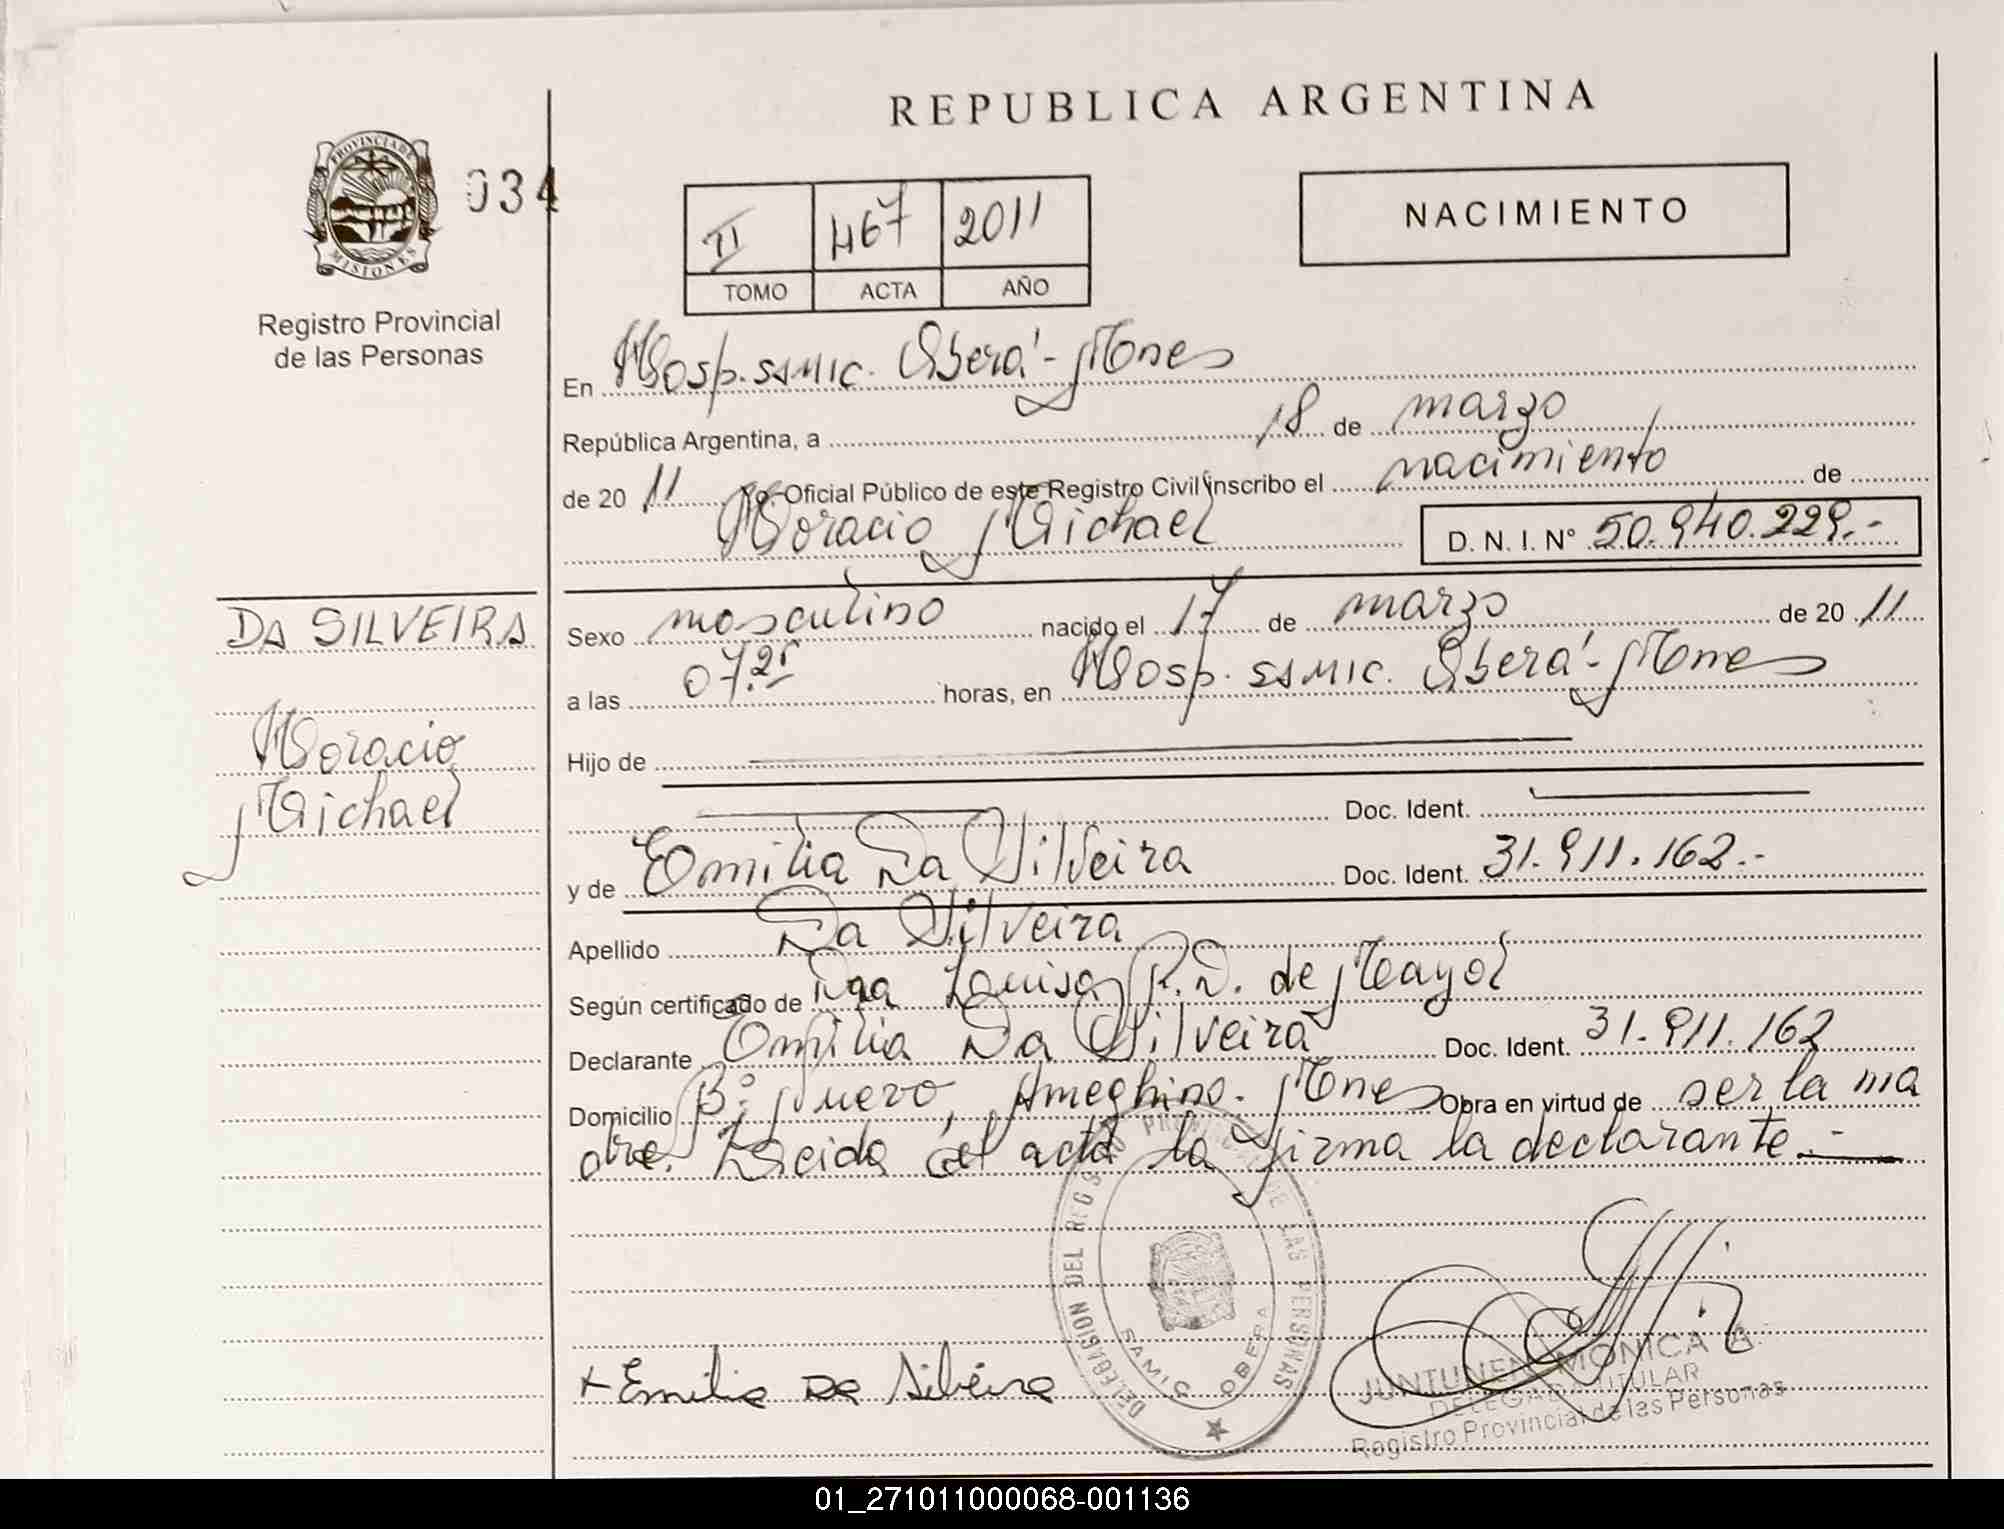 REPUBLICA ARGENTINA
PROVINCIA DE
MISIONES
034
Registro Provincial
de las Personas
II 467 2011
TOMO ACTA AÑO
NACIMIENTO
En Hosp. SAMIC. Oberá - Mnes
República Argentina, a 18 de marzo
de 20 11 Yo, Oficial Público de este Registro Civil inscribo el nacimiento de
Horacio Michael D. N. I. N° 50.940.229.-
DA SILVEIRA
Horacio
Michael
Sexo masculino nacido el 17 de marzo de 20 11
a las 07.25 horas, en Hosp. SAMIC. Oberá - Mnes
Hijo de
Doc. Ident.
y de Emilia Da Silveira Doc. Ident. 31.911.162.-
Apellido Da Silveira
Según certificado de Dra Louisa R.D. de Mayol
Declarante Emilia Da Silveira Doc. Ident. 31.911.162
Domicilio B° Nuevo, Ameghino. Mnes Obra en virtud de ser la ma
dre. Leída el acta la firma la declarante.-
+ Emilia Da Silveira
DELEGACION DEL REG PROVINCIAL DE LAS PERSONAS
SAMIC OBERA
JUNTUNEN MONICA A.
DELEGADA TITULAR
Registro Provincial de las Personas
01_271011000068-001136